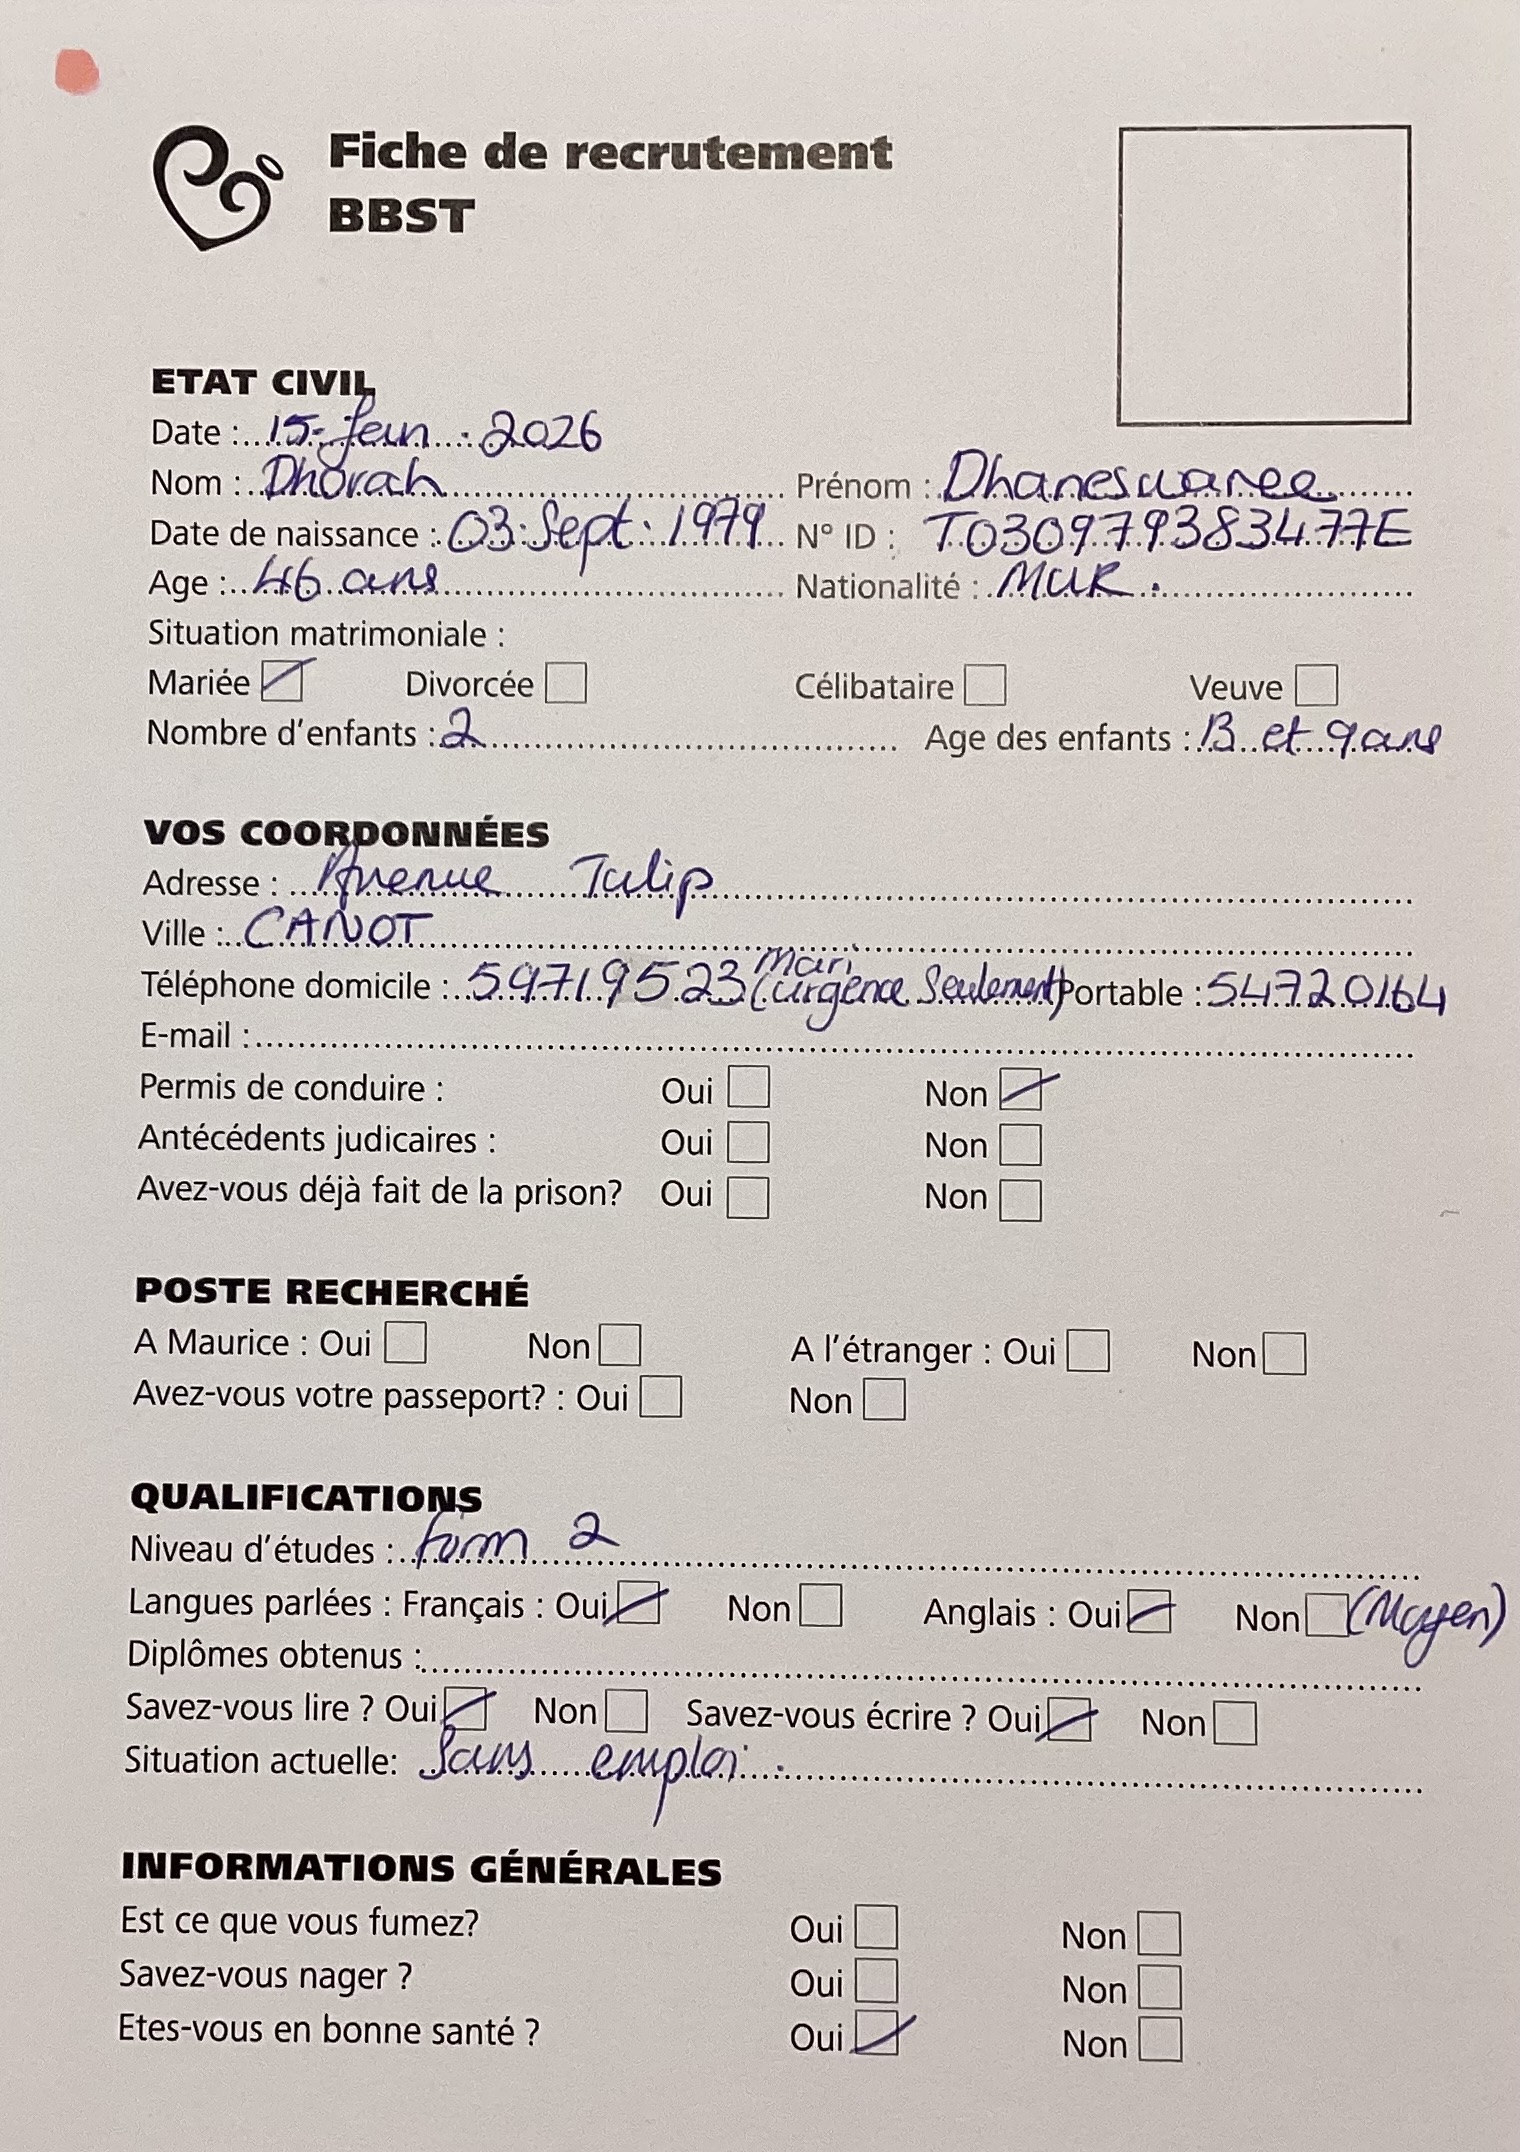 Fiche de recrutement
BBST
ETAT CIVIL
Date : 15- Jan - 2026
Nom : Dhorah Prénom : Dhaneswaree
Date de naissance : 03 Sept 1979 N° ID : T030979383477E
Age : 46 ans Nationalité : MUR.
Situation matrimoniale :
Mariée Divorcée Célibataire Veuve
Nombre d'enfants : 2 Age des enfants : 13 et 9 ans
VOS COORDONNÉES
Adresse : Avenue Tulip
Ville : CANOT
Téléphone domicile : 59719523 Mari (urgence Seulement) Portable : 54720164
E-mail :
Permis de conduire : Oui Non
Antécédents judicaires : Oui Non
Avez-vous déjà fait de la prison? Oui Non
POSTE RECHERCHÉ
A Maurice : Oui Non A l'étranger : Oui Non
Avez-vous votre passeport? : Oui Non
QUALIFICATIONS
Niveau d'études : form 2
Langues parlées : Français : Oui Non Anglais : Oui Non (Moyen)
Diplômes obtenus :
Savez-vous lire ? Oui Non Savez-vous écrire ? Oui Non
Situation actuelle: Sans emploi.
INFORMATIONS GÉNÉRALES
Est ce que vous fumez? Oui Non
Savez-vous nager ? Oui Non
Etes-vous en bonne santé ? Oui Non